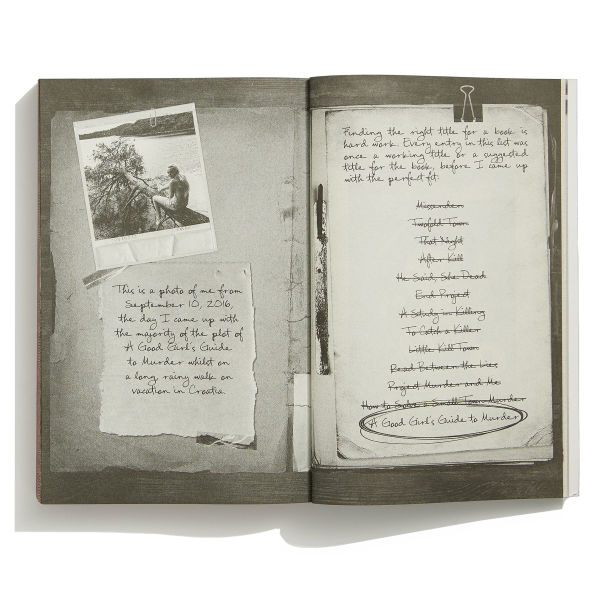 This is a photo of me from
September 10, 2016,
the day I came up with
the majority of the plot of
A Good Girl's Guide
to Murder whilst on
a long, rainy walk on
vacation in Croatia.
Finding the right title for a book is
hard work. Every entry in this list was
once a working title or a suggested
title for the book, before I came up
with the perfect fit.
Twofold Town
That Night
After Kill
He Said, She Dead
End Project
A Study in Killing
To Catch a Killer
Little Kill Town
Read Between the Lies
Project Murder and Me
How to Solve a Small Town Murder
A Good Girl's Guide to Murder